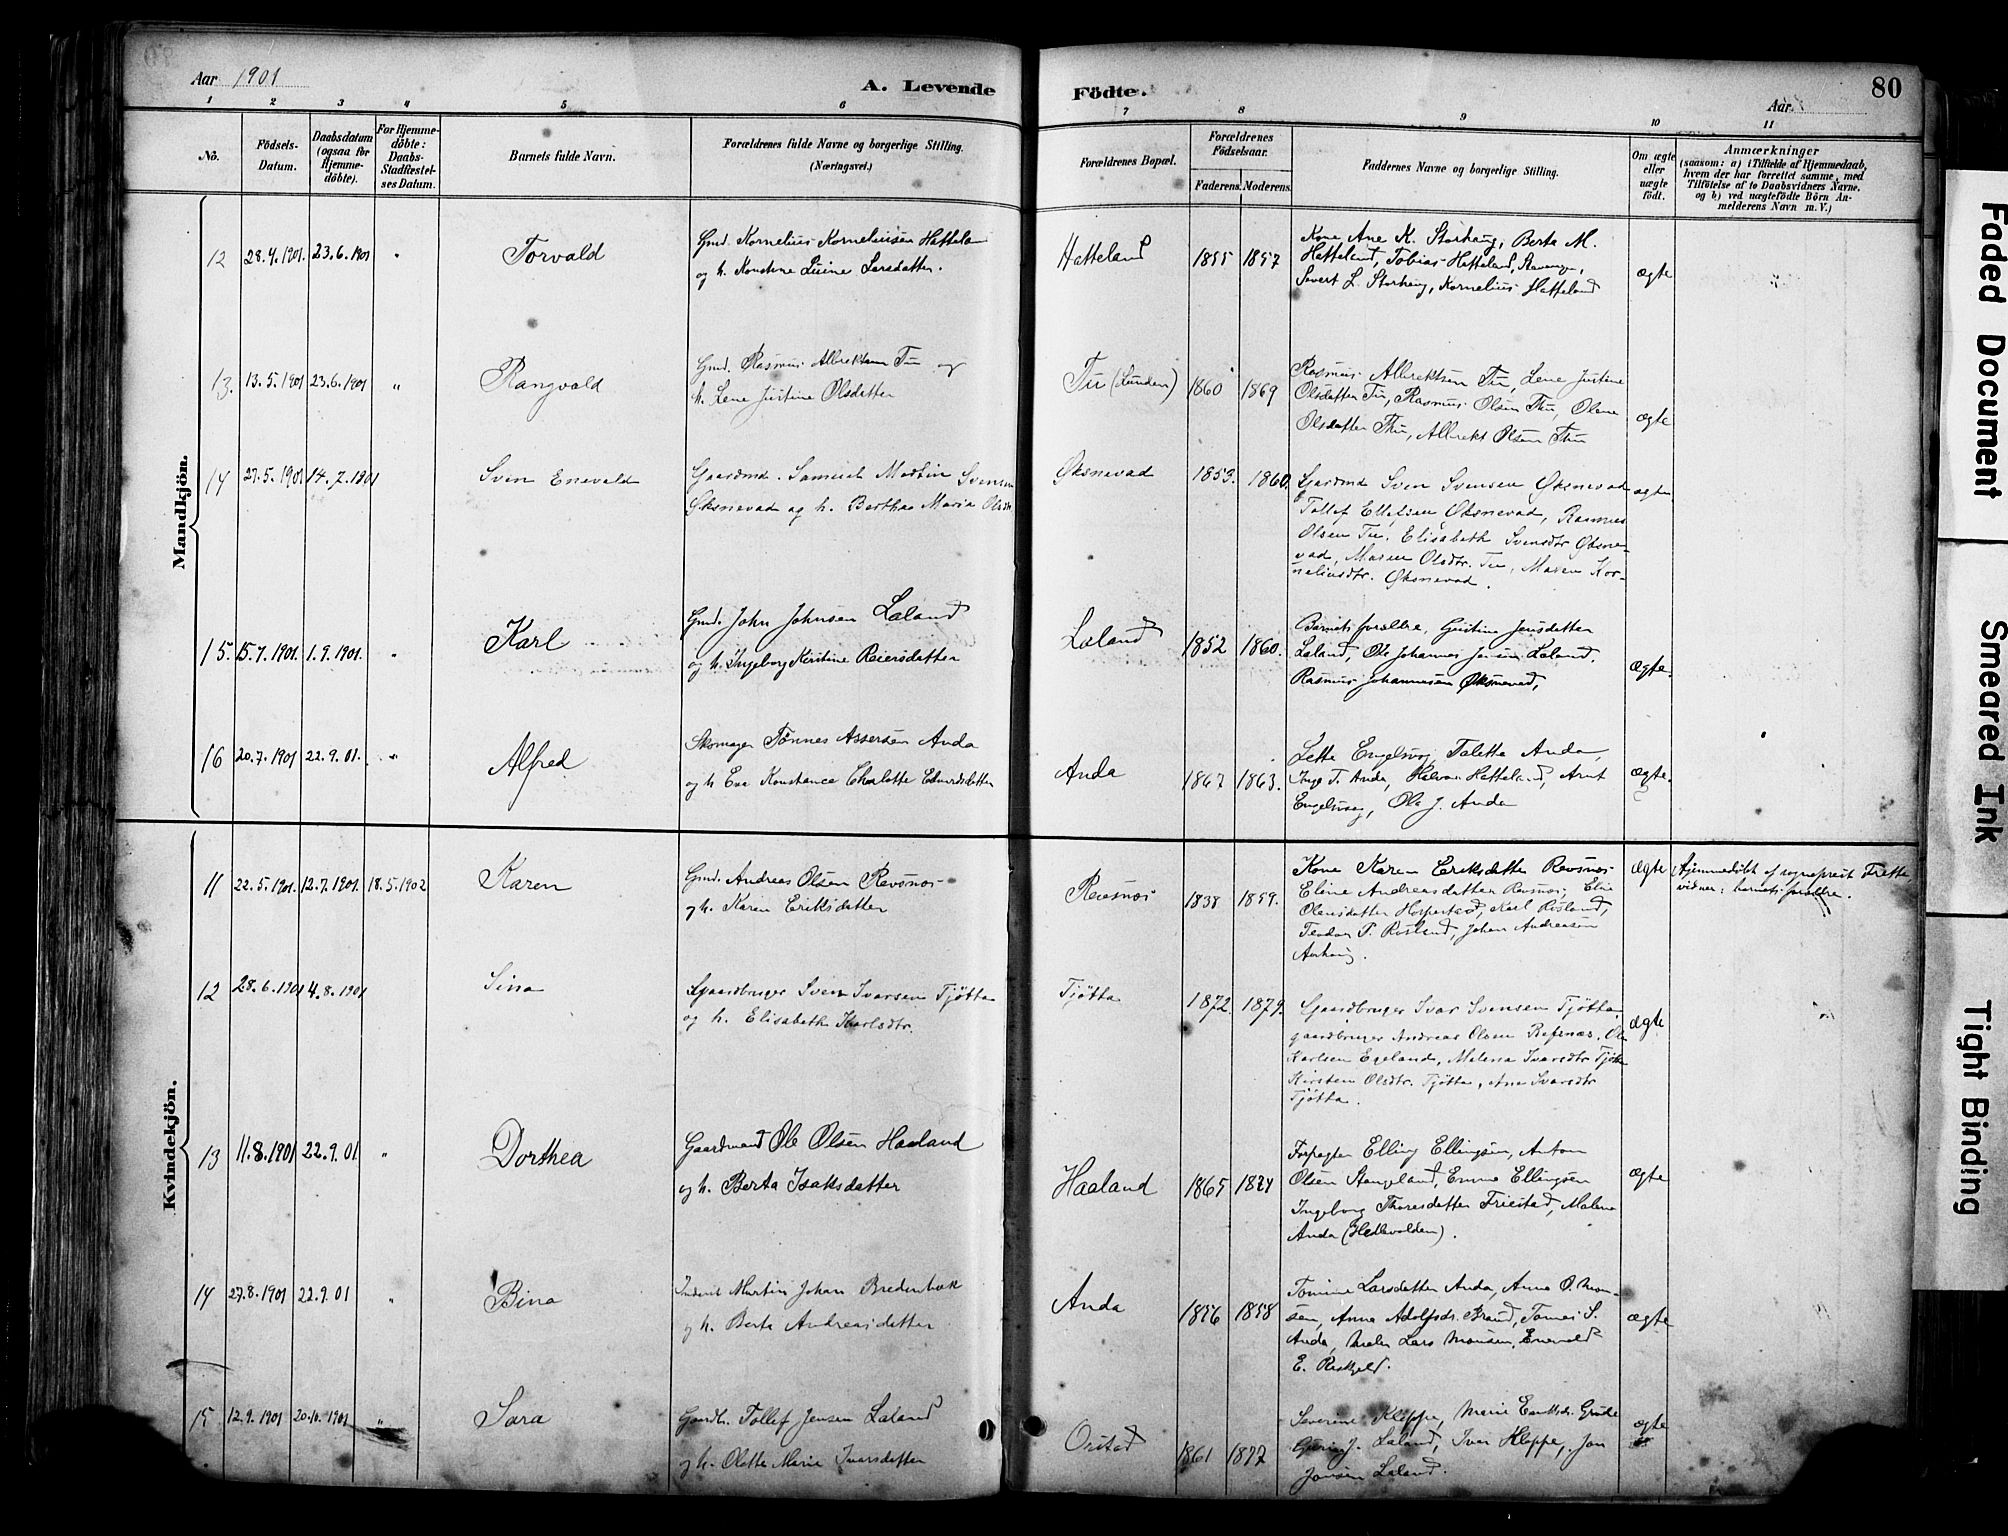 Aar 1901
A. Levende
Födte.
Aar.
80
1 2 3 4 5 6 7 8 9 10 11
No.
Födsels-
Datum.
Daabsdatum
(ogsaa for
Hjemme-
döbte).
For Hjemme-
döbte:
Daabs-
Stadfæstel-
ses Datum.
Barnets fulde Navn.
Forældrenes fulde Navne og borgerlige Stilling.
(Næringsvei.)
Forældrenes Bopæl.
Forældrenes
Födselsaar.
Faderens. Moderens.
Faddernes Navne og borgerlige Stilling.
Om ægte
eller
uægte
födt.
Anmærkninger
(saasom: a) i Tilfælde af Hjemmedaab,
hvem der har forrettet samme, med
Tilföielse af to Daabsvidners Navne,
og b) ved uægtefödte Börn An-
melderens Navn m. V.)
Mandkjön.
12 28.4.1901. 23.6.1901 "
Torvald
Gmd. Kornelius Korneliussen Hattela
og h. Larsdatter.
Hatteland 1855 1857
Kone Ane K. Storhaug, Berta M.
Hatteland, Tobias Hatteland,
Sivert L. Storhaug, Kornelius Hatteland
ægte
13. 13.5.1901 23.6.1901 "
Rangvald
Gmd. Rasmus Albrektsen Tu og
h. Lene Justine Olsdatter
Tu (Lunden) 1860 1869
Rasmus Albrektsen Tu, Lene Justine
Olsdatter Tu, Rasmus Olsen Thu, Olene
Olsdatter Thu, Albrekt Olsen Thu
ægte
14 27.5.1901 14.7.1901
Sven Enevald
Gaardmd. Samuel Martin Svensen
Øksnevad og h. Berthae Maria Olsdtr
Øksnevad 1853. 1860.
Gaardmd Sven Svensen Øksnevad
Tollef Øksnevad, Rasmus
Olsen Tu, Elisabeth Svensdtr Øksne-
vad, Maren Olsdtr. Tu, Maren Kor-
neliusdtr. Øksnevad.
ægte
15. 15.7.1901. 1.9.1901. "
Karl
Gmd. John Johnsen Laland
og h. Ingeborg Kristine Reiersdatter
Laland 1852 1860.
Barnets forældre, Gustine Jensdatter
Laland, Ole Johannes Jensen Laland,
Rasmus Johannesen Øksnevad,
ægte.
16 20.7.1901 22.9.01. "
Alfred
Skomager Tönnes Assersen Anda
og h Eva Konstance Charlotte Edvardsdatter
Anda 1867 1863.
Lette Engelsvog, Talette Anda,
Inge T. Anda, Hatteland, Arnt
Engelsvog, Ole J. Anda
ægte.
Kvindekjön.
11 22.5.1901. 12.7.1901. 18.5.1902
Karen
Gmd. Andreas Olsen Revsnæs
og h. Karen Eriksdatter
Revsnæs 1838 1859.
Kone Karen Eriksdatter Revsnæs
Eline Andreasdatter Revsnæs,
Karl
Johan Andreasen
ægte
Hjemmedöbt af sogneprest Frette,
vidner: barnets forældre.
12 28.6.1901 4.8.1901
Sina
Gaardbruger Sven Ivarsen Tjøtta
og h. Elisabeth Karlsdtr.
Tjøtta 1872. 1879.
Gaardbruger Ivar Svensen Tjøtta,
gaardbruger Andreas Olsen Refsnæs, Ole
Karlsen Egeland, Malena Ivarsdtr Tjøtta
Kirsten Olsdtr. Tjøtta, Ane Ivarsdtr
Tjøtta.
ægte
13 11.8.1901 22.9.01. "
Dorthea
Gaardmand Ole Olsen Haaland
og h. Berta Isaksdatter
Haaland 1865 1874
Forpagter Elling Ellingsen, Anton
Olsen Stangeland, Emme Ellingsen
Ingeborg Thoresdatter Friestad, Malena
Anda (Hedlevolden).
ægte
14 27.8.1901 22.9.01 "
Bina
Martin Johan Bredenbæk
og h. Berta Andreasdatter
Anda 1856 1858
Tomine Larsdatter Anda, Anna O. Mon-
sen, Anne Adolfsdr. Brand, Tönnes S.
Anda, Maler Lars Monsen, Enevald
E.
ægte
15 12.9.1901 20.10.1901 "
Sara
Gaardbr. Tollef Jensen Laland
og h. Olette Marie Ivarsdatter
Orstad 1861 1877
Severine Kleppe, Marie Grude
Laland, Iver Kleppe, Jon
Jonsen Laland.
ægte
Faded Document
Smeared Ink
Tight Binding